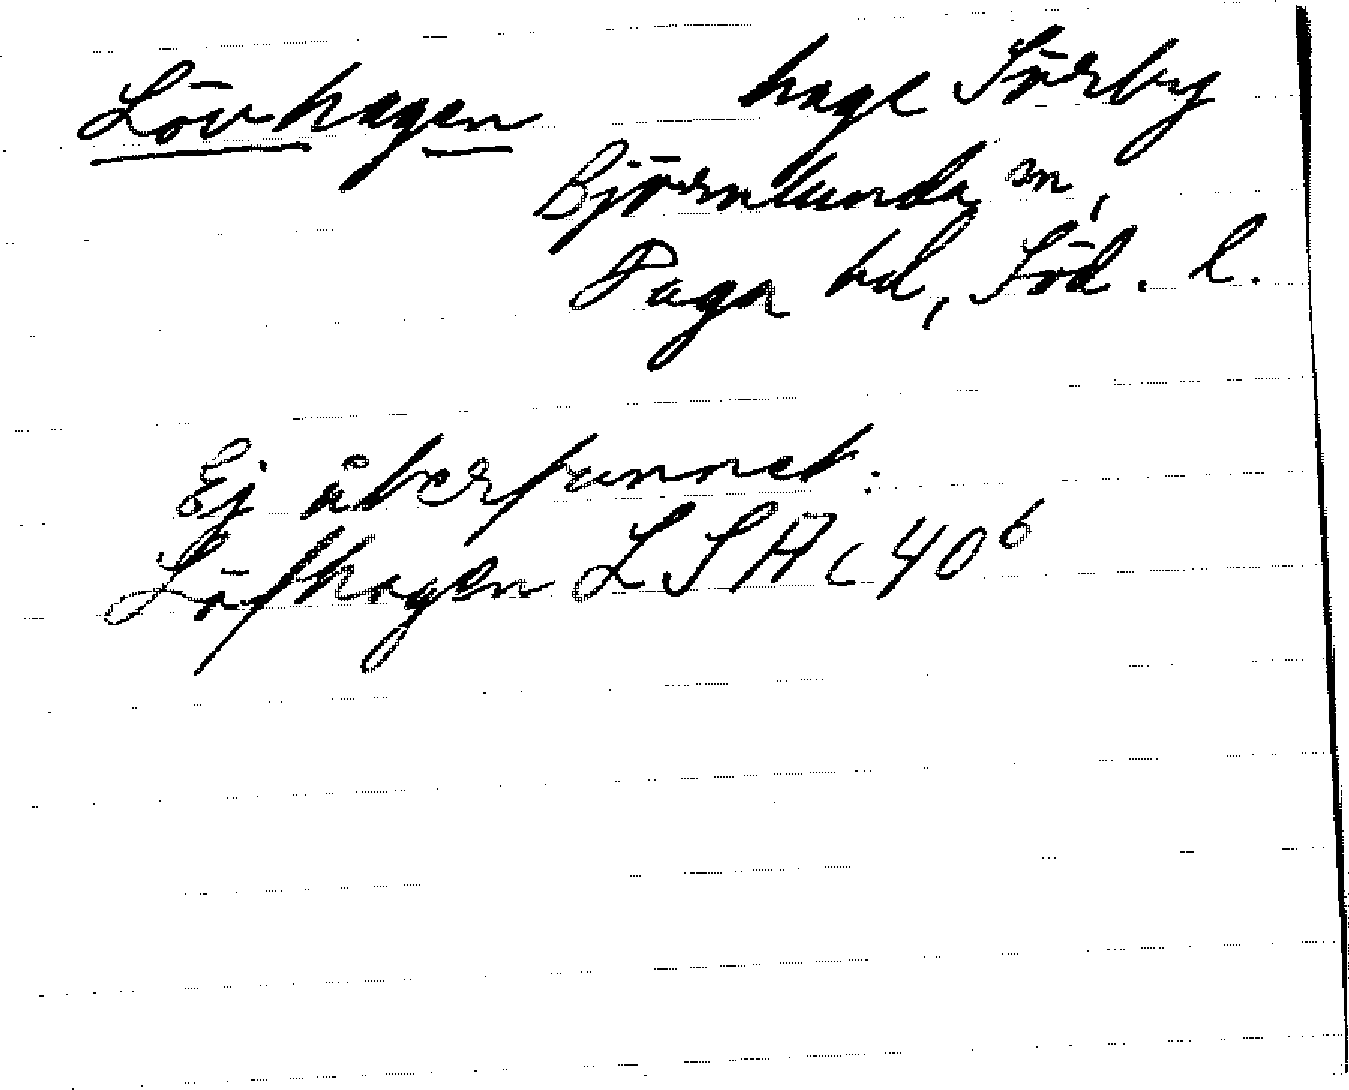 Lövhagen hage Sörby
Björnlunda sn,
Daga hd, Söd. l.
Ej återfunnet.
Löfhagen LSA C 40⁶